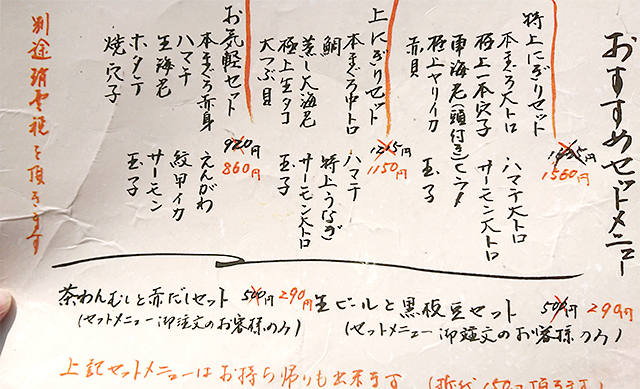 おすすめセットメニュー
特上にぎりセット
1560円
本まぐろ大トロ
ハマチ大トロ
極上一本穴子
サーモン大トロ
車海老(頭付き)
ヒラメ
極上ヤリイカ
玉子
赤貝
上にぎりセット
1215円
1150円
本まぐろ中トロ
ハマチ
鯛
特上うなぎ
蒸し大海老
サーモン大トロ
極上生タコ
玉子
大つぶ貝
お気軽セット
920円
860円
本まぐろ赤身
えんがわ
ハマチ
紋甲イカ
生海老
サーモン
ホタテ
玉子
焼穴子
別途消費税を頂きます
茶わんむしと赤だしセット 500円 290円
(セットメニュー御注文のお客様のみ)
生ビールと黒枝豆セット 500円 290円
(セットメニュー御注文のお客様のみ)
上記セットメニューはお持ち帰りも出来ます